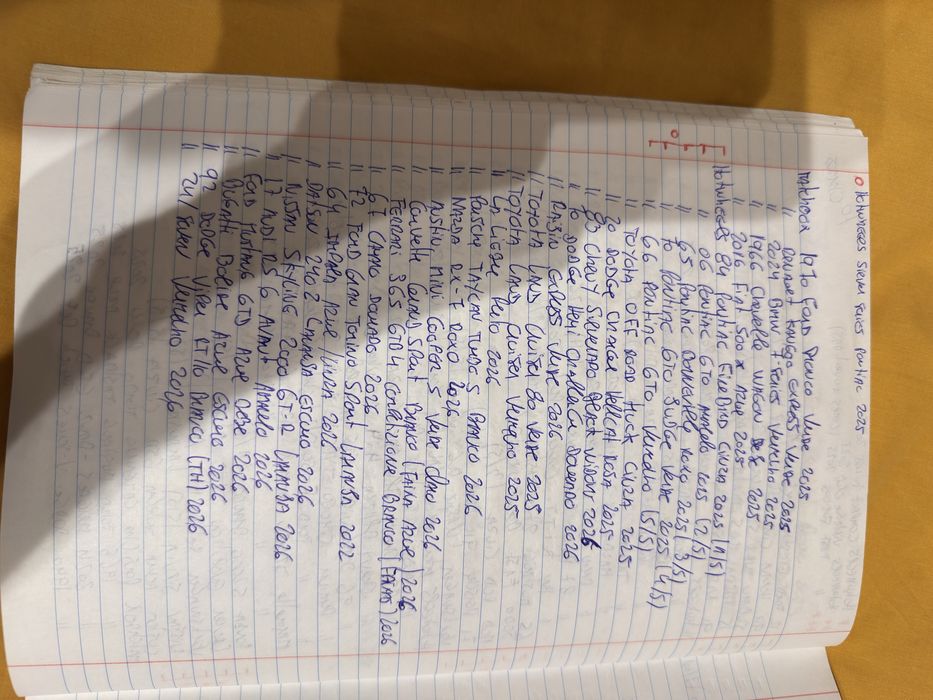 o Hotwheels Silver Series Pontiac 2025
Matchbox 1970 Ford Bronco Verde 2025
" Renault Kangoo Express Verde 2025
" 2024 BMW 7 Series Vermelho 2025
" 1966 Chevelle Wagon Bege 2025
" 2016 Fiat 500x Azul 2025
Hotwheels 84 Pontiac Firebird Cinza 2025 (1/5)
" 06 Pontiac GTO Amarelo 2025 (2/5)
" 65 Pontiac Bonneville Roxo 2025 (3/5)
" 70 Pontiac GTO Judge Verde 2025 (4/5)
" 66 Pontiac GTO Vermelho (5/5)
" Toyota Off Road Truck Cinza 2025
" 20 Dodge Charger Hellcat Rosa 2025
" 83 Chevy Silverado 2026
" 70 Dodge Hemi Challenger Dourado 2026
" Express Verde 2026
" Toyota Land Cruiser 80 Verde 2025
" Toyota Land Cruiser Vermelho 2025
" Preto 2026
" Porsche Taycan Turbo S Branco 2026
" Mazda RX-7 Roxo 2026
" Austin Mini Cooper S Verde 2026
" Corvette Grand Sport Branco (Faixa Azul) 2026
" Ferrari 365 GTB4 Competizione Branco 2026
" 67 Camaro Dourado 2026
" 72 Ford Gran Torino Sport Laranja 2022
" 64 Impala Azul/Cinza 2026
" Datsun 240Z Laranja Escuro 2026
" Nissan Skyline 2000 GT-R Laranja 2026
" 17 Audi RS 6 Avant Amarelo 2026
" Ford Mustang GTD Azul Bebe 2026
" Bugatti Bolide Azul Escuro 2026
" 92 Dodge Viper RT/10 Branco (TH) 2026
" Vermelho 2026